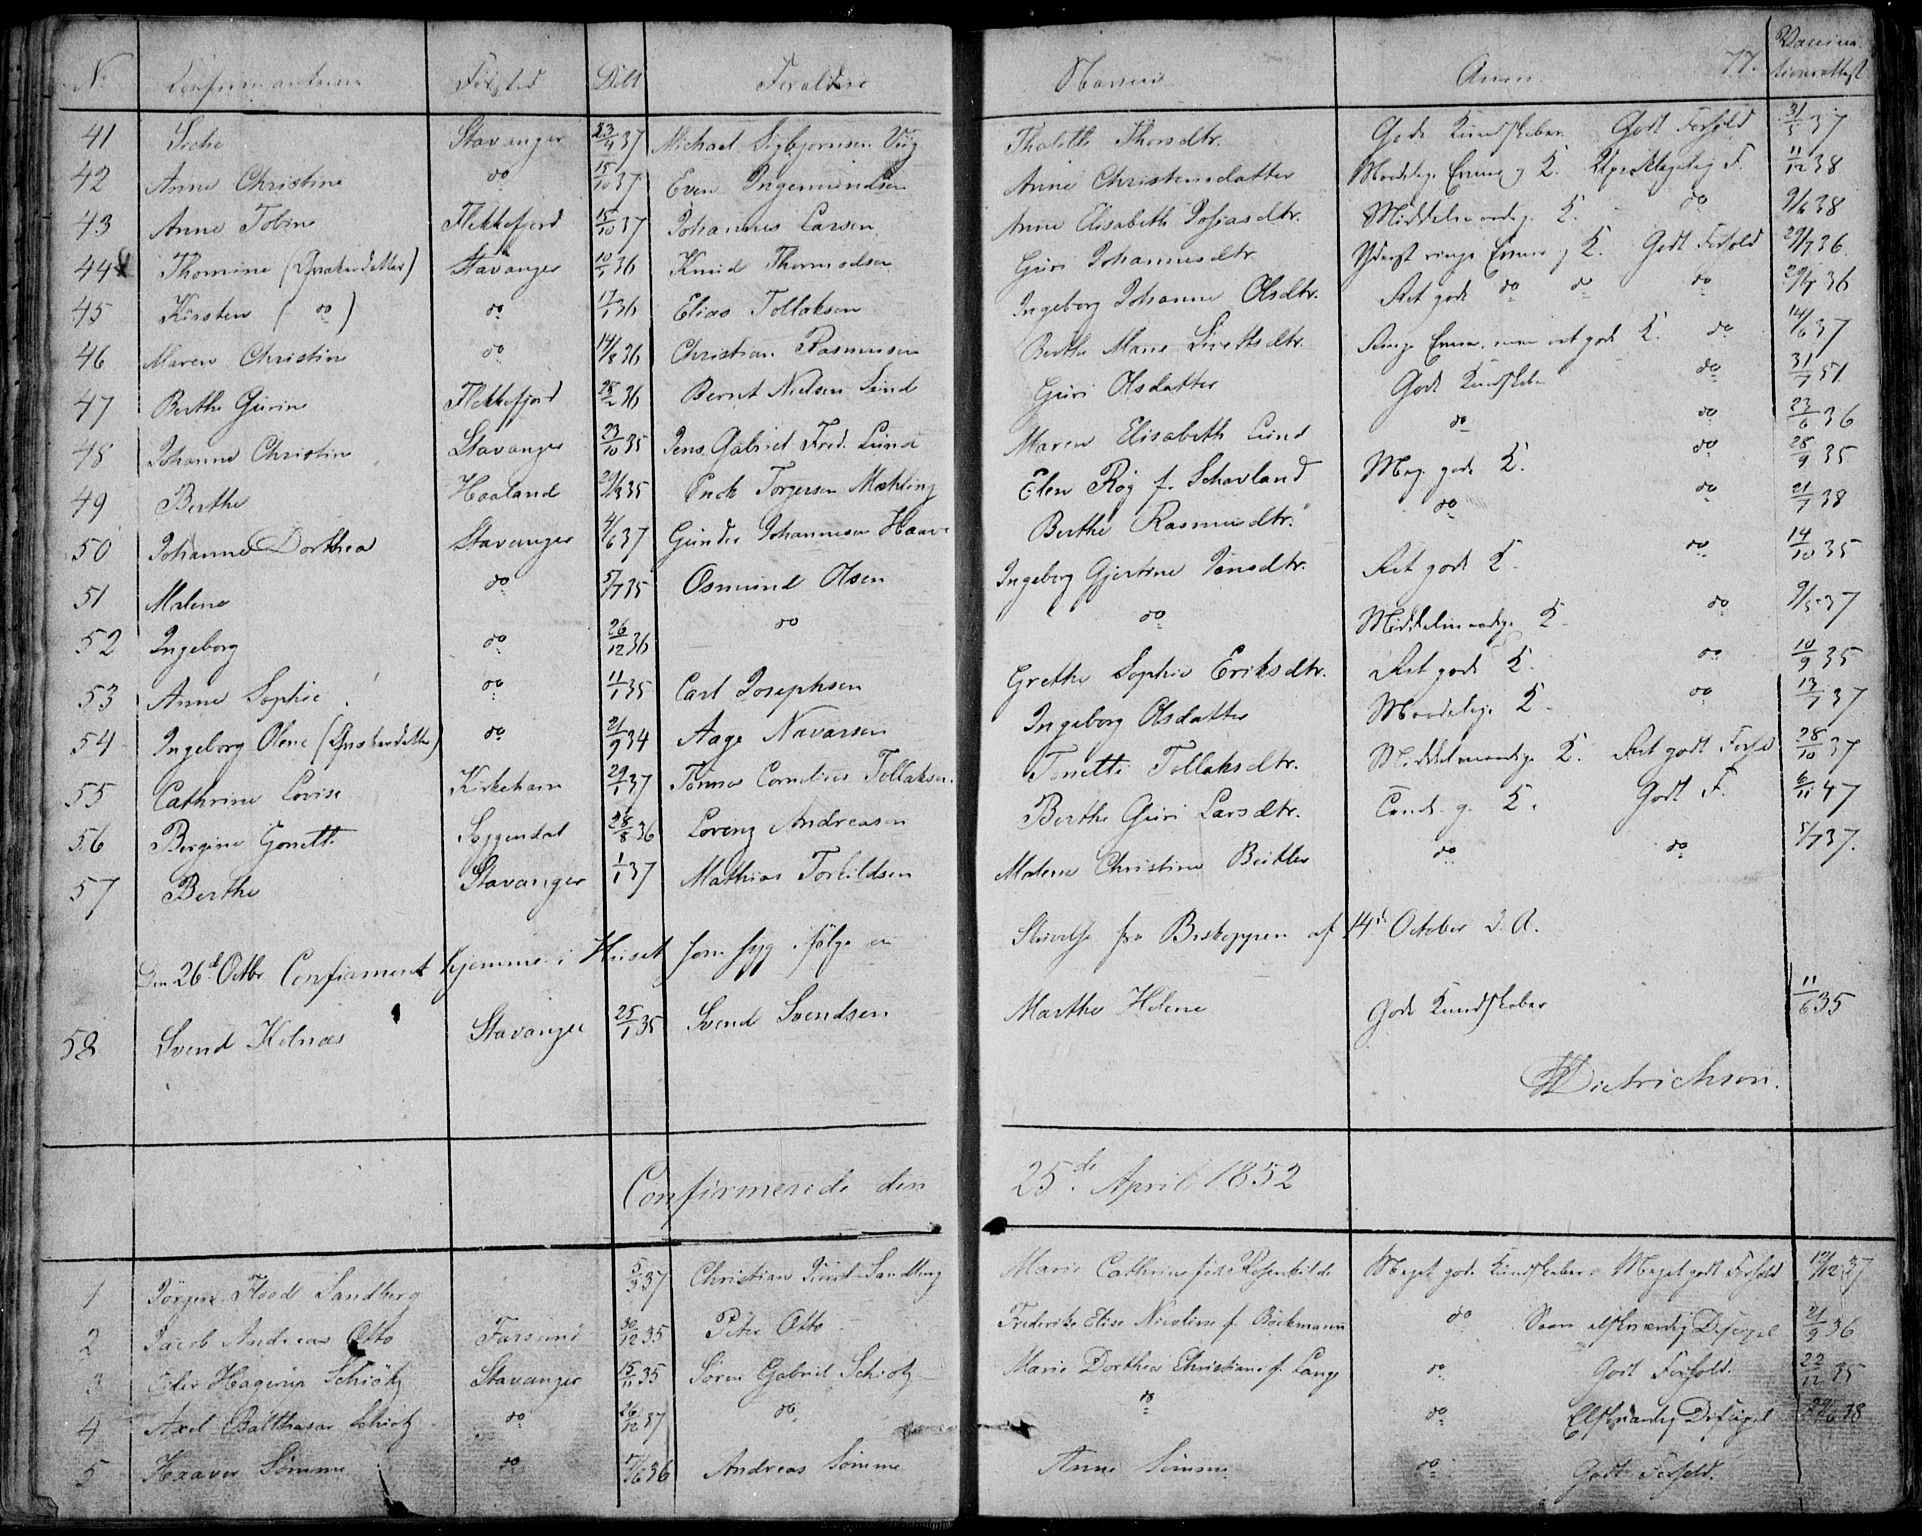 77.
No Confirmanterne Fødsted Døbt Forældre Navne Anm. Vaccinationsattest
41 Stavanger 23/4 37 Michael Sigbjørnsen Viig Thalette Thorsdtr. Gode Kundskaber Godt Forhold 31/5 37
42 Anne Christine do 15/10 37 Even Ingemundsen Anne Christensdatter Maadelige Evner og K. Upaaklagelig F. 11/12 38
43 Anne Tobine Flekkefjord 15/10 37 Johannes Larsen Anne Elisabeth Josiasdtr. Middelmaadige K. do 9/6 38
44 Thomine (Qvækerdatter) Stavanger 10/7 36 Knud Thormodsen Guri Johannesdtr. Yderst ringe Evner og K. Godt Forhold 29/7 36
45 Kirsten (do) do 17/1 36 Elias Tollaksen Ingeborg Johanne Olsdtr. Ret gode do do do 29/7 36
46 Maren Christine do 14/8 36 Christian Rasmussen Berthe Marie Sivertsdtr. Ringe Evner, men ret gode K. do 14/6 37
47 Berthe Gurine Flekkefjord 28/2 36 Bernt Nielsen Lund Guri Olsdatter Gode Kundskaber do 31/7 51
48 Johanne Christine Stavanger 23/10 35 Jens Gabriel Fred. Lund Maren Elisabeth Lund do do 23/6 36
49 Berthe Haaland 29/3 35 Torgersen Mæhling Elen Røg f. Schavland Meg. gode K. do 28/9 35
50 Johanne Dorthea Stavanger 4/6 37 Gunder Johannesen Haave Berthe Rasmusdtr. do do 21/7 38
51 Malene do 5/7 35 Osmund Olsen Ingeborg Gjertine Jonsdtr. Ret gode K. do 14/10 35
52 Ingeborg do 26/12 36 do do Middelmaadige K. do 9/5 37
53 Anne Sophie do 11/1 35 Carl Josephsen Grethe Sophie Eriksdtr. Ret gode K. do 10/9 35
54 Ingeborg Olene (Qvækerdatter) do 21/9 34 Aage Navarsen Ingeborg Olsdatter Maadelige K. do 13/7 37
55 Cathrine Lovise Kirkehavn 29/1 37 Tønnes Cornelius Tollaksen Tonette Tollaksdtr. Middelmaadige K. Ret godt Forhold 28/10 37
56 Bergine Gonette Soggendal 28/8 36 Lorenz Andreasen Berthe Guri Larsdtr. Temel. g. K. Godt F. 6/11 47
57 Berthe Stavanger 1/1 37 Mathias Torkildsen Malene Christine Beitler do do 5/7 37.
Den 26de Octbr Confirmeret hjemme i Huset som syg ifølge en Skrivelse fra Biskoppen af 14de October d. A.
58 Svend Helnæs Stavanger 25/1 35 Svend Svendsen Marthe Helene Gode Kundskaber 11/6 35
Dietrichson.
Confirmerede den 25de April 1852
1 Jørgen Flood Sandberg 5/3 37 Christian Sandberg Marie Cathrine født Rosenkilde Meget gode Kundskaber Meget godt Forhold 19/12 37
2 Jacob Andreas Otto Farsund 30/12 35 Peter Otto Frederike Elise Nicoline f. Bøckmann do Saare elskværdig Discipel 21/9 36
3 Hagerup Schiøtz Stavanger 15/11 35 Søren Gabriel Schiøtz Marie Dorthea Christiane f. Lange do Godt Forhold. 22/12 35
4 Axel Balthasar Schiøtz do 26/12 37 do do do Elskværdig Discipel 29/6 38
5 Haaver Sømme do 17/6 36 Andreas Sømme Anne Sømme do Godt Forhold.